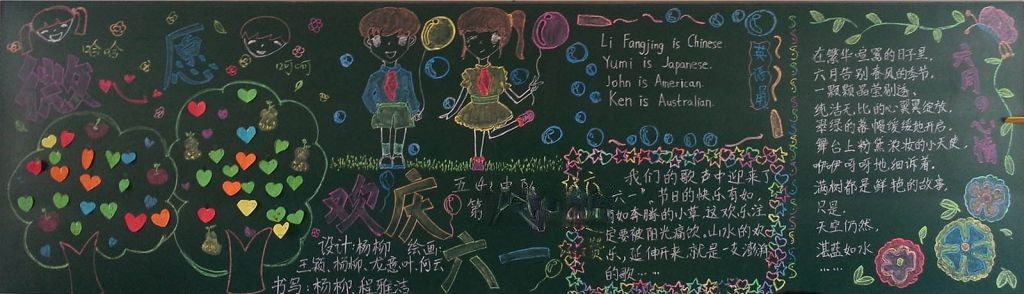 微心愿
哈哈
呵呵
欢庆六一
五(4)中队
第
设计:杨柳 绘画:
王颖、杨柳、龙意叶、何云
书写:杨柳、程雅洁
Li Fangjing is Chinese.
Yumi is Japanese.
John is American.
Ken is Australian.
英语角
我们的歌声中迎来了
"六一",节日的快乐有如
有如奔腾的小草,这欢乐注
定要被阳光痛饮,山水的欢
乐,延伸开来,就是一支澎湃
的歌……
六月之歌
在繁华喧嚣的日子里,
六月告别春风的季节,
一颗颗晶莹剔透、
纯洁无比的心冀冀绽放,
翠绿的幕幔缓缓地开启,
舞台上粉黛浓妆的小天使,
咿咿呀呀地细诉着,
满树都是鲜艳的故事,
只是,
天空仍然,
湛蓝如水
……